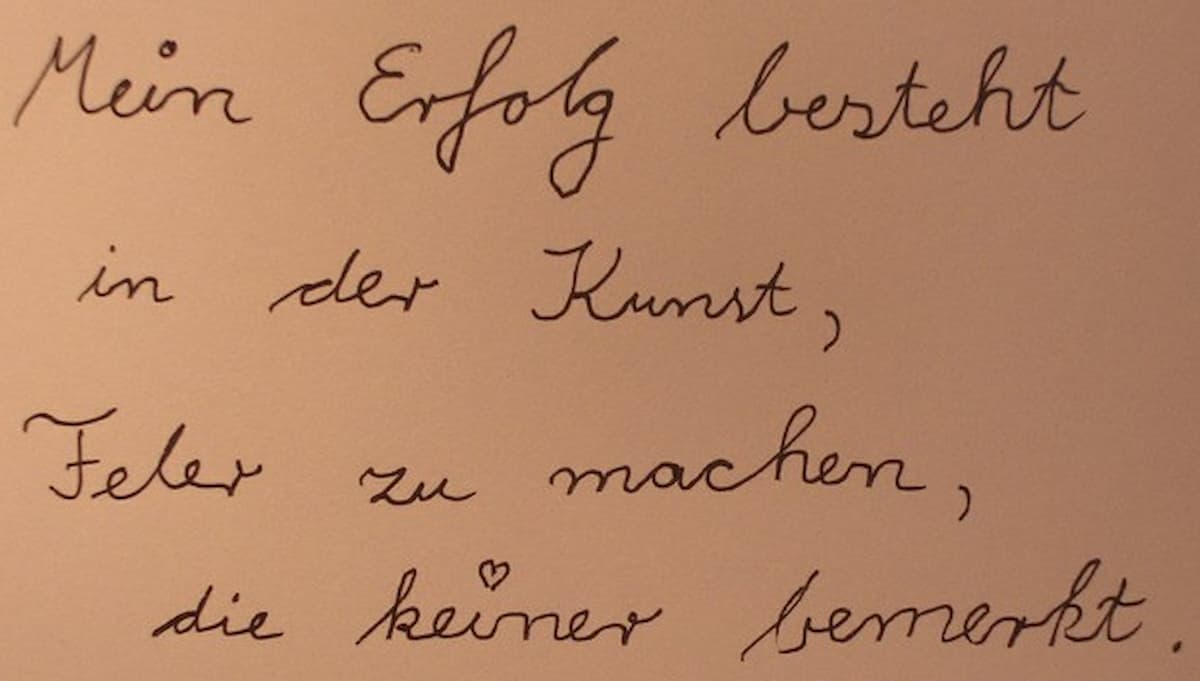 Mein Erfolg besteht
in der Kunst,
Feler zu machen,
die keiner bemerkt.